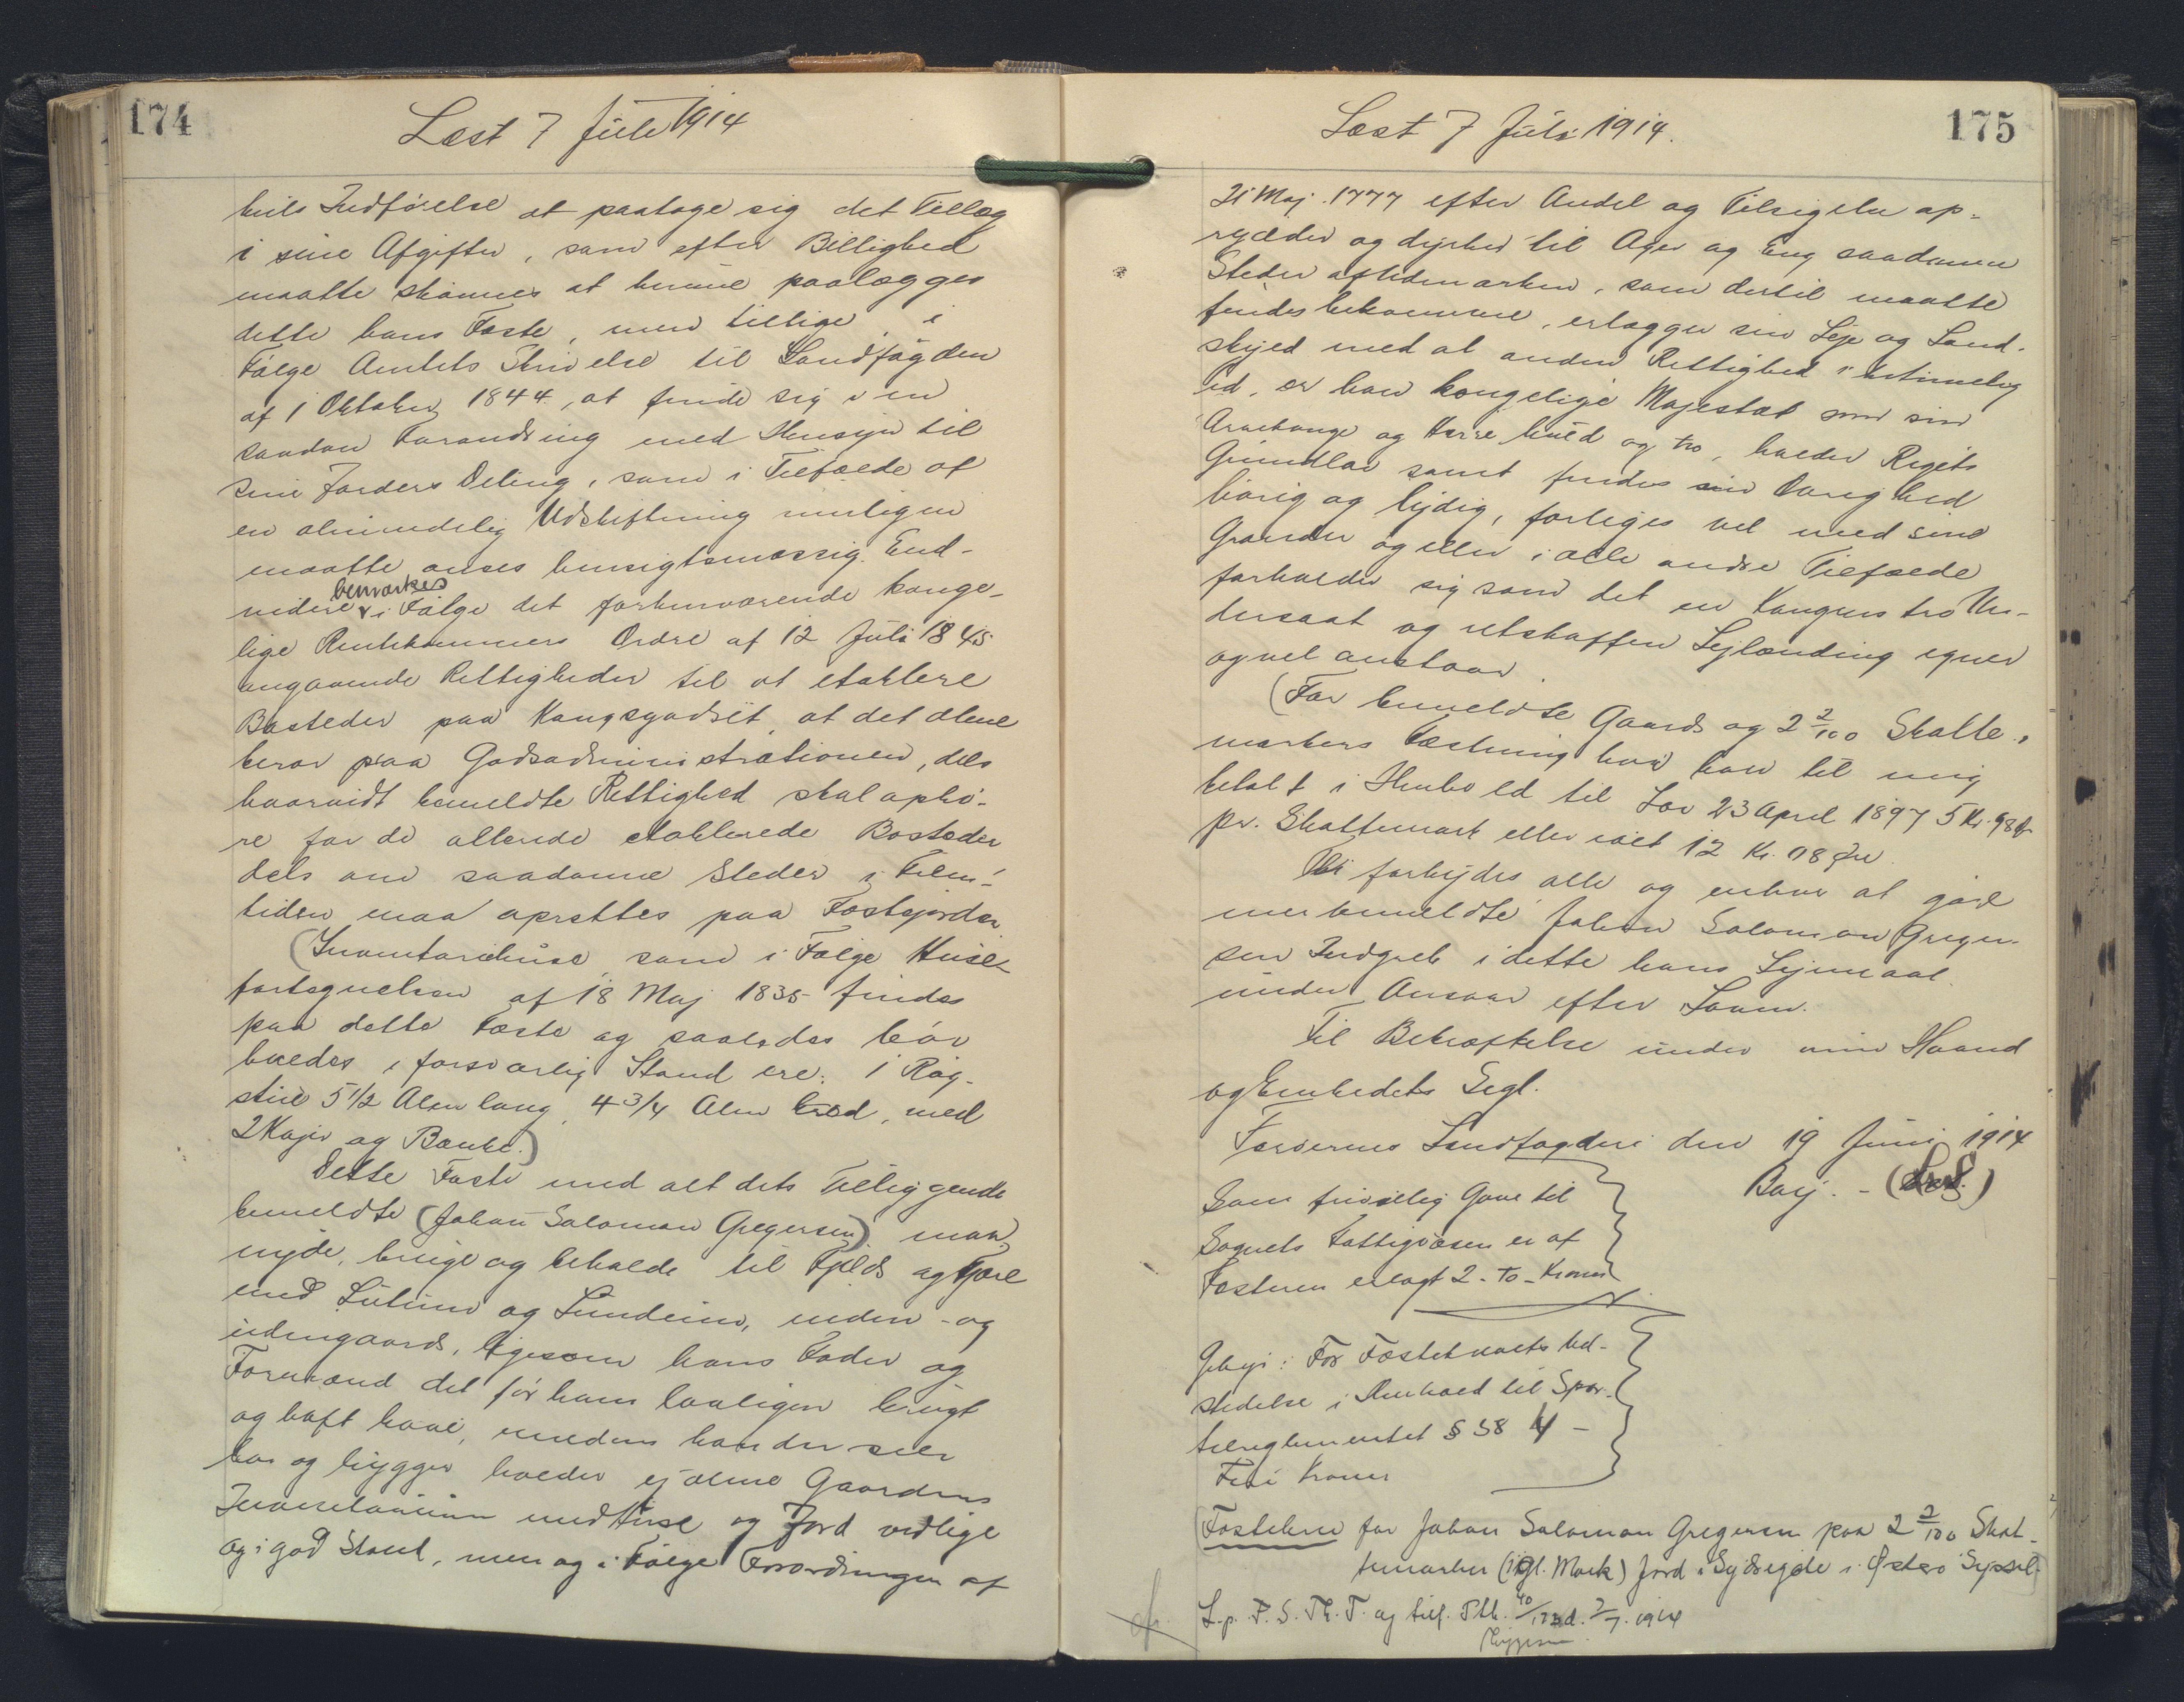 174
Læst 7 Juli 1914
hvils Indførelse at paatage sig det Tillæg
i sine Afgifter, som efter Billighed
maatte skønnes at kunne paalægges
dette hans Fæste, men tillige i
Følge Amtets Skrivelse til Landfogden
af 1 Oktober 1844, at finde sig i en
saadan Forandring med Hensyn til
sine Jorders Deling, som i Tilfælde af
en almindelig Udskiftning muligen
maatte anses hensigtsmæssig. End-
videre bemærkes i Følge det forhenværende konge-
lige Rentekammers Ordre af 12 Juli 1845
angaaende Rettigheder til at etablere
Bosteder paa Kongsgodset, at det alene
beror paa Godsadministrationen, dels
hvorvidt bemeldte Rettighed skal ophø-
re for de allerede etablerede Bosteder
dels om saadanne Steder i Frem-
tiden maa oprettes paa Fæstejorder
(Inventariehuse som i Følge Huse-
fortegnelsen af 18 Maj 1835 findes
paa dette Fæste og saaledes bør
holdes i forsvarlig Stand ere: 1 Røg-
stue 5 1/2 Alen lang, 4 3/4 Alen bred, med
2 Køjer og Bænke.)
Dette Fæste med alt dets Tilliggende
bemeldte (Johan Salomon Gregersen) maa
nyde, bruge og beholde til Fjelds og Fjære
med Lutum og Lundum, inden- og
udengaards, ligesom hans Fader og
Formænd det før ham lovligen brugt
og haft have, imedens han der selv
bor og bygger, holder ej alene Gaardens
Inventarium med Huse og Jord vedlige
og i god Stand, men og i Følge Forordningen af
175
Læst 7 Juli 1914.
21 Maj 1777 efter Andel og Tilsigelse op-
rydder og dyrker til Ager og Eng saadanne
Steder af Udemarken, som dertil maatte
findes bekvemme, erlægger sin Leje og Land-
skyld med al anden Rettighed i betimelig
Tid, er hans kongelige Majestæt som sin
Arvekonge og Herre huld og tro, holder Rigets
Grundlov samt findes sin Øvrighed
hørig og lydig, forliges vel med sine
Grander og ellers i alle andre Tilfælde
forholder sig som det en Kongens tro Un-
dersaat og retskaffen Lejlænding egner
og vel anstaar.
(For bemeldte Gaards og 2 2/100 Skatte-
markers Fæstning har han til mig
betalt i Henhold til Lov 23 April 1897 5 Kr. 98 Ør
pr. Skattemark eller ialt 12 Kr. 08 Øre.
Thi forbydes alle og enhver at gøre
merbemeldte Johan Salomon Greger-
sen Indgreb i dette hans Lejemaal
under Ansvar efter Loven.
Til Bekræftelse under min Haand
og Embedets Segl.
Færøernes Landfogderi den 19 Juni 1914
Som frivillig Gave til
Sognets Fattigvæsen er af
Fæsteren erlagt 2 - To - Kroner
Gebyr: For Fæstebrevets Ud-
stedelse i Henhold til Spor-
telreglementet § 58 4 -
Fire Kroner
(Fæstebrev for Johan Salomon Gregersen paa 2 2/100 Skat-
temarker (1 gl. Mark) Jord i Sydregøte i Østerø Syssel)
L. p. F. S. Th. T. og tilf. Ptk. 40/173 d. 7/7. 1914